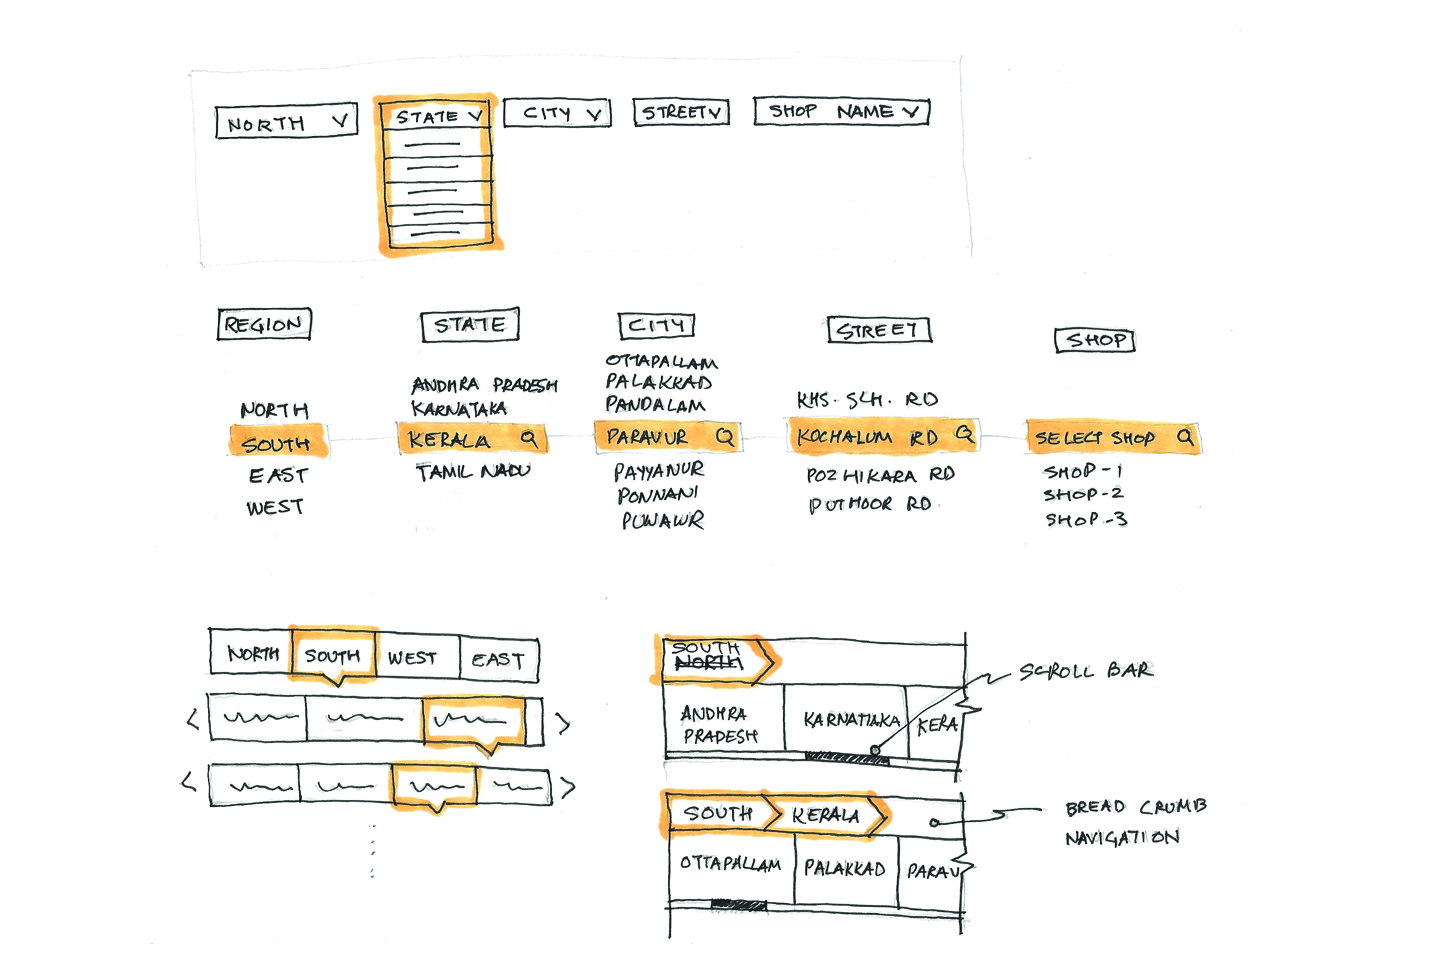 NORTH
STATE
CITY
STREET
SHOP NAME
REGION
STATE
CITY
STREET
SHOP
NORTH
SOUTH
EAST
WEST
ANDHRA PRADESH
KARNATAKA
KERALA
TAMIL NADU
OTTAPALLAM
PALAKKAD
PANDALAM
PARAVUR
PAYYANUR
PONNANI
KHS. SCH. RD
KOCHALUM RD
POZHIKARA RD
PUTHOOR RD.
SELECT SHOP
SHOP-1
SHOP-2
SHOP-3
NORTH
SOUTH
WEST
EAST
SOUTH
NORTH
ANDHRA
PRADESH
KARNATAKA
KERA
SCROLL BAR
SOUTH
KERALA
OTTAPALLAM
PALAKKAD
PARAV
BREAD CRUMB
NAVIGATION